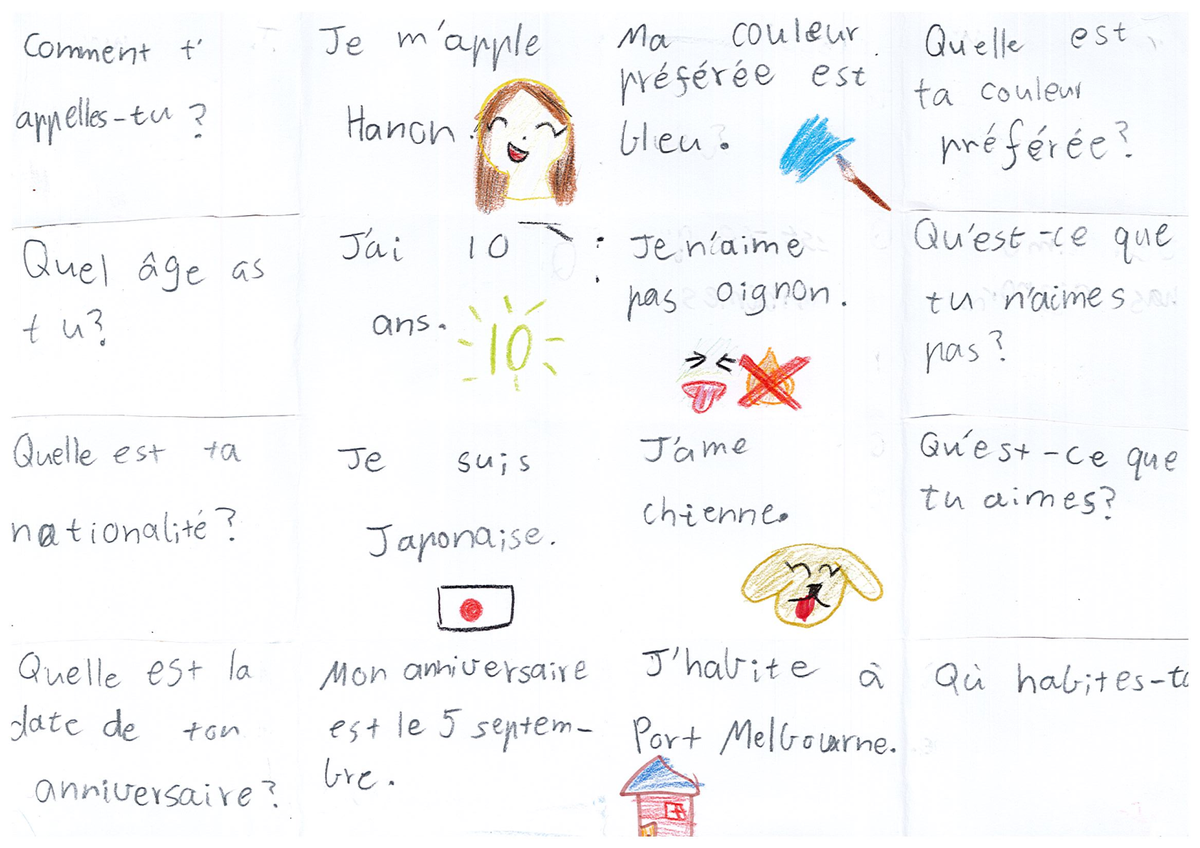 Comment t'
appelles-tu ?
Je m'apple
Hanon.
Ma couleur
préférée est
bleu.
Quelle est
ta couleur
préférée?
Quel âge as
tu?
J'ai 10
ans.
10
Je n'aime
pas oignon.
Qu'est-ce que
tu n'aimes
pas?
Quelle est ta
nationalité?
Je suis
Japonaise.
J'ame
chienne.
Qu'est-ce que
tu aimes?
Quelle est la
date de ton
anniversaire?
Mon anniversaire
est le 5 septem-
bre.
J'habite à
Port Melbourne.
Où habites-tu